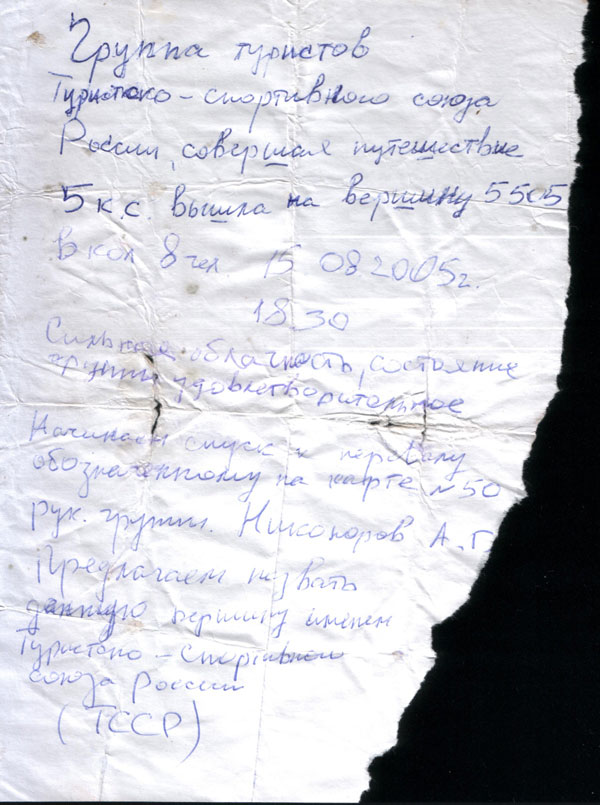 Группа туристов
Туристско-спортивного союза
России, совершая путешествие
5 к.с. вышла на вершину 5505
в кол 8 чел. 15 08 2005г.
18.30
Сильная облачность, состояние
группы удовлетворительное
Начинаем спуск к перевалу
обозначенному на карте №50
рук. группы. Никоноров А.Г.
Предлагаем назвать
данную вершину именем
Туристско-спортивного
союза России
(ТССР)